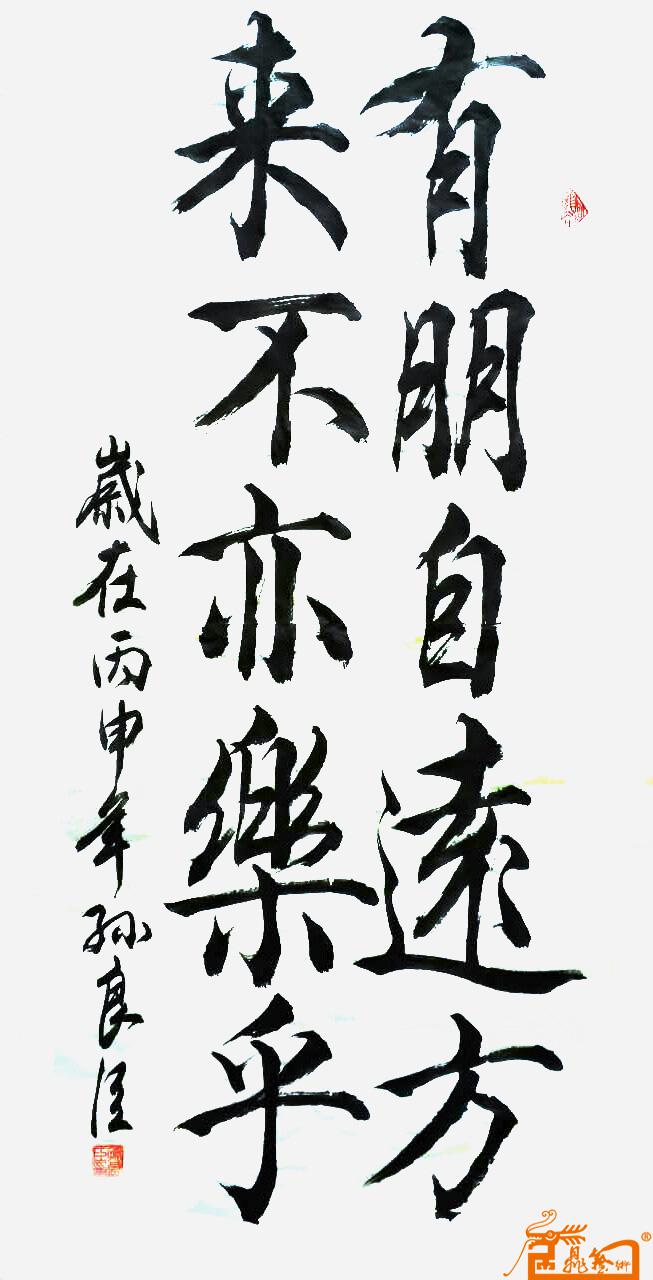 有朋自遠方
来不亦樂乎
歳在丙申年孫良臣